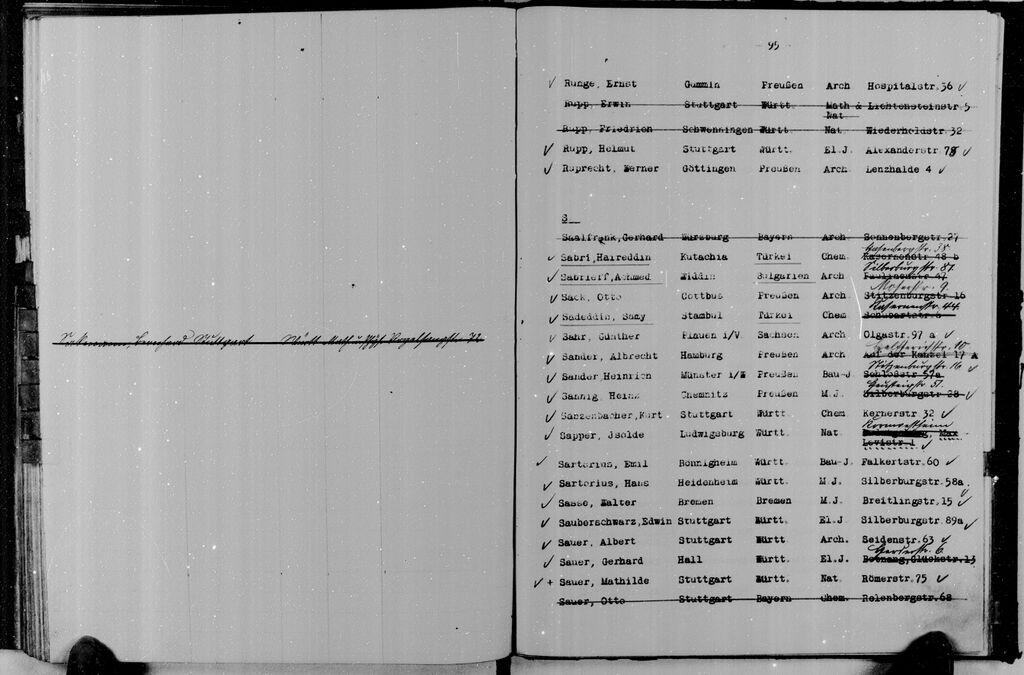 Bernhard Stuttgart Württ Math u Phys Vogelsangstr. 72
- 95 -
✓ Runge, Ernst Gummin Preußen Arch Hospitalstr. 36 ✓
Rupp, Erwin Stuttgart Württ. Math & Lichtensteinstr. 5
Nat
Rupp, Friedrich Schwenningen Württ. Nat. Wiederholdstr. 32
✓ Rupp, Helmut Stuttgart Württ. El.J. Alexanderstr. ✓
✓ Ruprecht, Werner Göttingen Preußen Arch Lenzhalde 4 ✓
S
Saalfrank, Gerhard Würzburg Bayern Arch Sonnenbergstr. 27
Rosenbergstr. 38
✓ Sabri, Haireddin Kutachia Türkei Chem. Kasernenstr 48 b
Silberburgstr. 87
✓ Sabrieff, Achmed Widdin Bulgarien Arch Paulinenstr 47
Moserstr. 9.
✓ Sack, Otto Cottbus Preußen Arch. Stitzenburgstr 16
Kasernenstr. 44
✓ Sadeddin, Samy Stambul Türkei Chem Schubartstr 8
✓ Sahr, Günther Plauen i/V Sachsen Arch Olgastr. 97 a ✓
10
✓ Sander, Albrecht Hamburg Preußen Arch Auf der Kanzel 17 ✓
Stitzenburgstr. 16 ✓
✓ Sander, Heinrich Münster i/W Preußen Bau-J Schloßstr 57a
51.
✓ Sannig, Heinz Chemnitz Preußen M.J. Silberburgstr 28 ✓
✓ Sanzenbacher, Kurt Stuttgart Württ Chem Kernerstr 32 ✓
Kornwestheim
✓ Sapper, Jsolde Ludwigsburg Württ. Nat. Max
✓
✓ Sartorius, Emil Bönnigheim Württ. Bau-J. Falkertstr. 60 ✓
✓ Sartorius, Hans Heidenheim Württ. M.J. Silberburgstr. 58a. ✓
✓ Sasse, Walter Bremen Bremen M.J. Breitlingstr. 15 ✓
✓ Sauberschwarz, Edwin Stuttgart Württ. El.J Silberburgstr. 89a ✓
✓ Sauer, Albert Stuttgart Württ. Arch. Seidenstr. 63 ✓
Herderstr. 6.
✓ Sauer, Gerhard Hall Württ. El.J. Botnang, Glückstr. 13
✓ + Sauer, Mathilde Stuttgart Württ. Nat. Römerstr. 75 ✓
Sauer, Otto Stuttgart Bayern Chem. Relenbergstr. 68